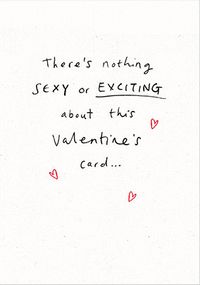 There's nothing
SEXY or EXCITING
about this
Valentine's
card...